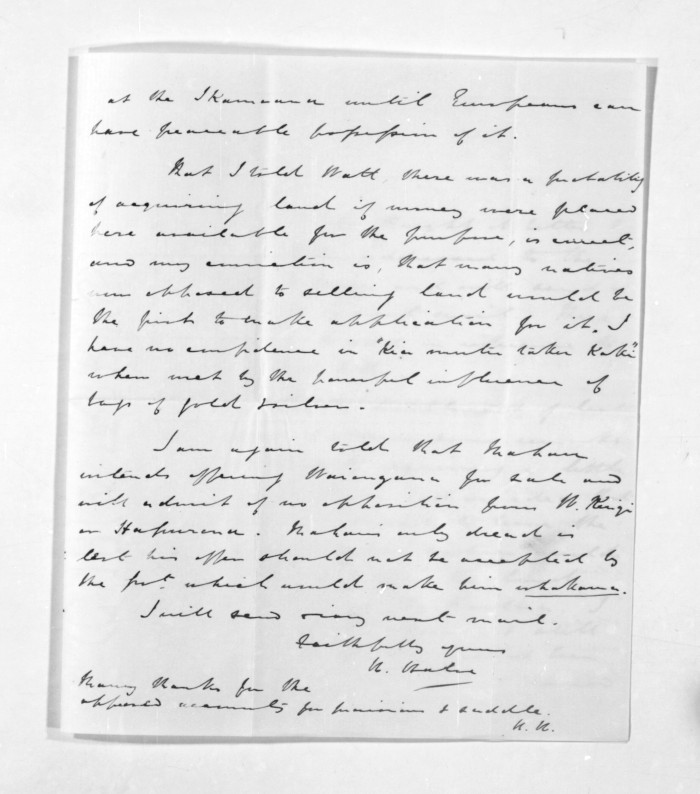 at the Ikamoana until Europeans can
have peaceable possession of it.
That I told Watt, there was a probability
of acquiring land if money were placed
here available for the purpose, is correct,
and my conviction is, that many natives
now opposed to selling land would be
the first to make application for it. I
have no confidence in "Kia
when met by the powerful influence of
bags of gold & silver.
I am again told that Mahau
intends offering Waiongana for sale and
will admit of no opposition from W. Kingi
or Hapurona. Mahau's only dread is
lest his offer should not be accepted by
the Govt. which would make him whakama.
I will send diary next mail.
Faithfully yours
H. Halse
Many thanks for the
approved accounts for provisions & saddle.
H. H.